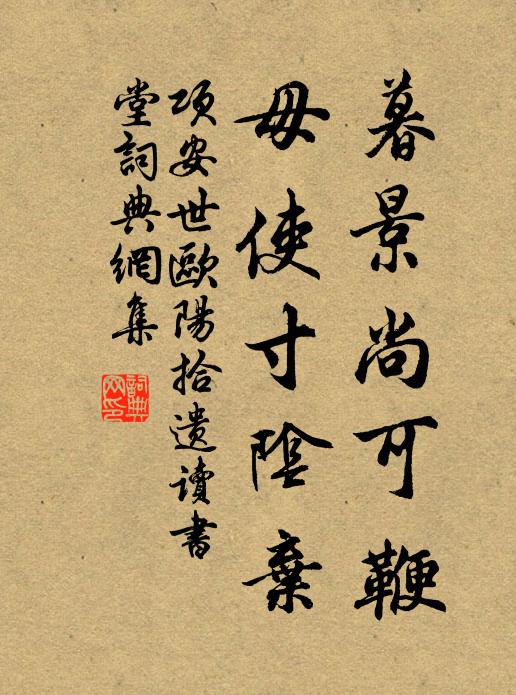 暮景尚可鞭
毋使寸陰棄
項安世歐陽拾遺讀書
堂詞典網集
詞典
网印